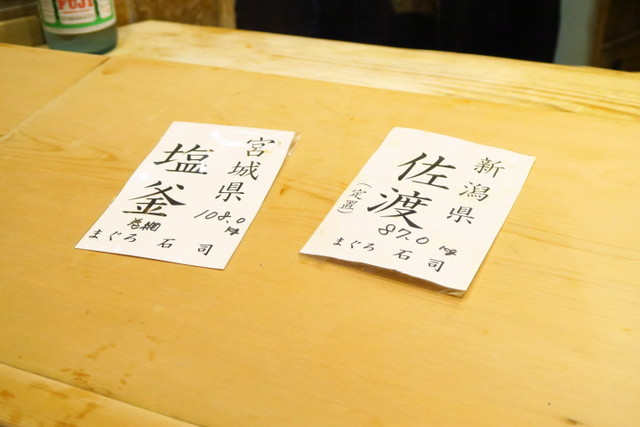 宮城県
塩釜
108.0 kg
巻網
まぐろ 石司
新潟県
佐渡
(定置)
87.0 kg
まぐろ 石司
FUJI